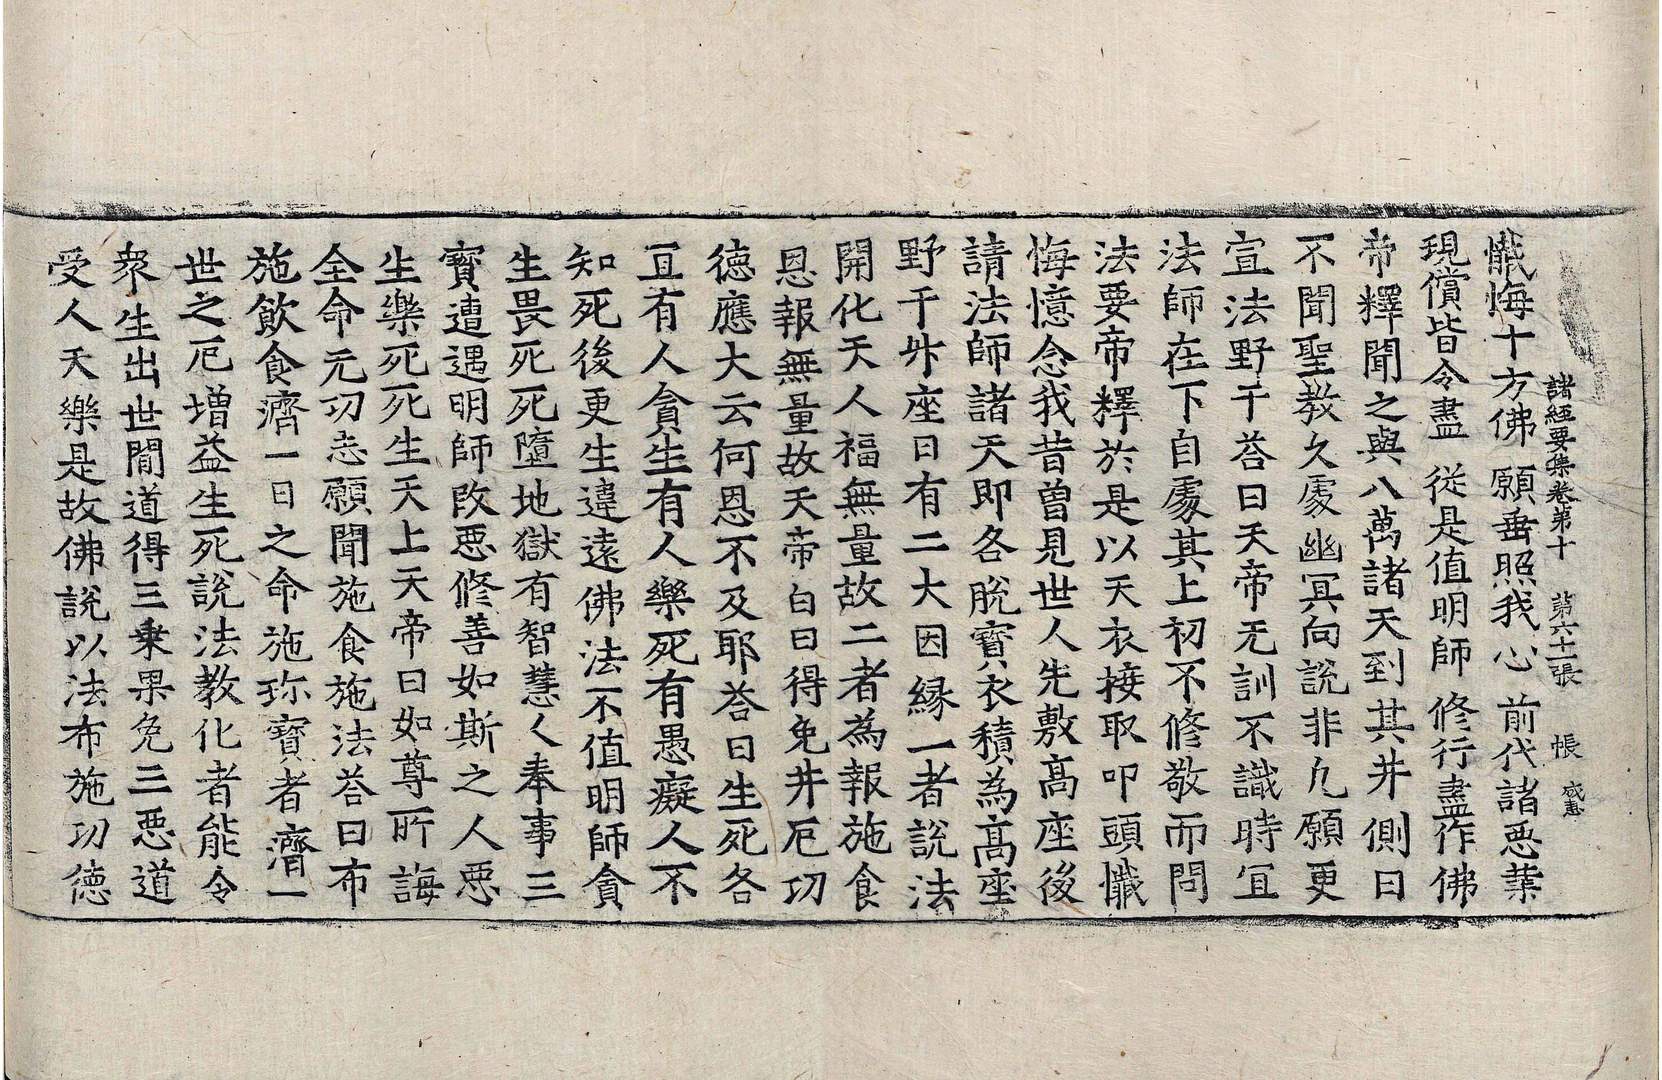 諸經要集卷第十 第六十一張 帳 成惠
懺悔十方佛 願垂照我心 前代諸惡業
現償皆令盡 從是值明師 修行盡作佛
帝釋聞之與八萬諸天到其井側曰
不聞聖教久處幽冥向說非凡願更
宣法野干荅曰天帝无訓不識時冝
法師在下自處其上初不修敬而問
法要帝釋於是以天衣接取叩頭懺
悔憶念我昔曾見世人先敷髙座後
請法師諸天即各脫寶衣積為髙座
野干升座曰有二大因緣一者說法
開化天人福無量故二者為報施食
恩報無量故天帝白曰得免井厄功
德應大云何恩不及耶荅曰生死各
冝有人貪生有人樂死有愚癡人不
知死後更生違遠佛法不值明師貪
生畏死死墮地獄有智慧人奉事三
寶遭遇明師改惡修善如斯之人惡
生樂死死生天上天帝曰如尊所誨
全命无功志願聞施食施法荅曰布
施飲食濟一日之命施珎寶者濟一
世之厄增益生死說法教化者能令
衆生出世閒道得三乗果免三惡道
受人天樂是故佛說以法布施功德